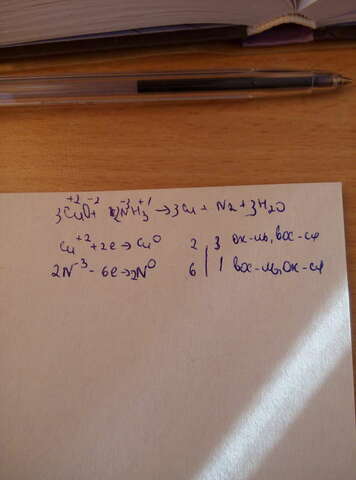 +2 -2 -3 +1
3CuO + 2NH3 → 3Cu + N2 + 3H2O
Cu+2 + 2e → Cu0 2 | 3 ок-ль, вос-ся
2N-3 - 6e → 2N0 6 | 1 вос-ль, ок-ся